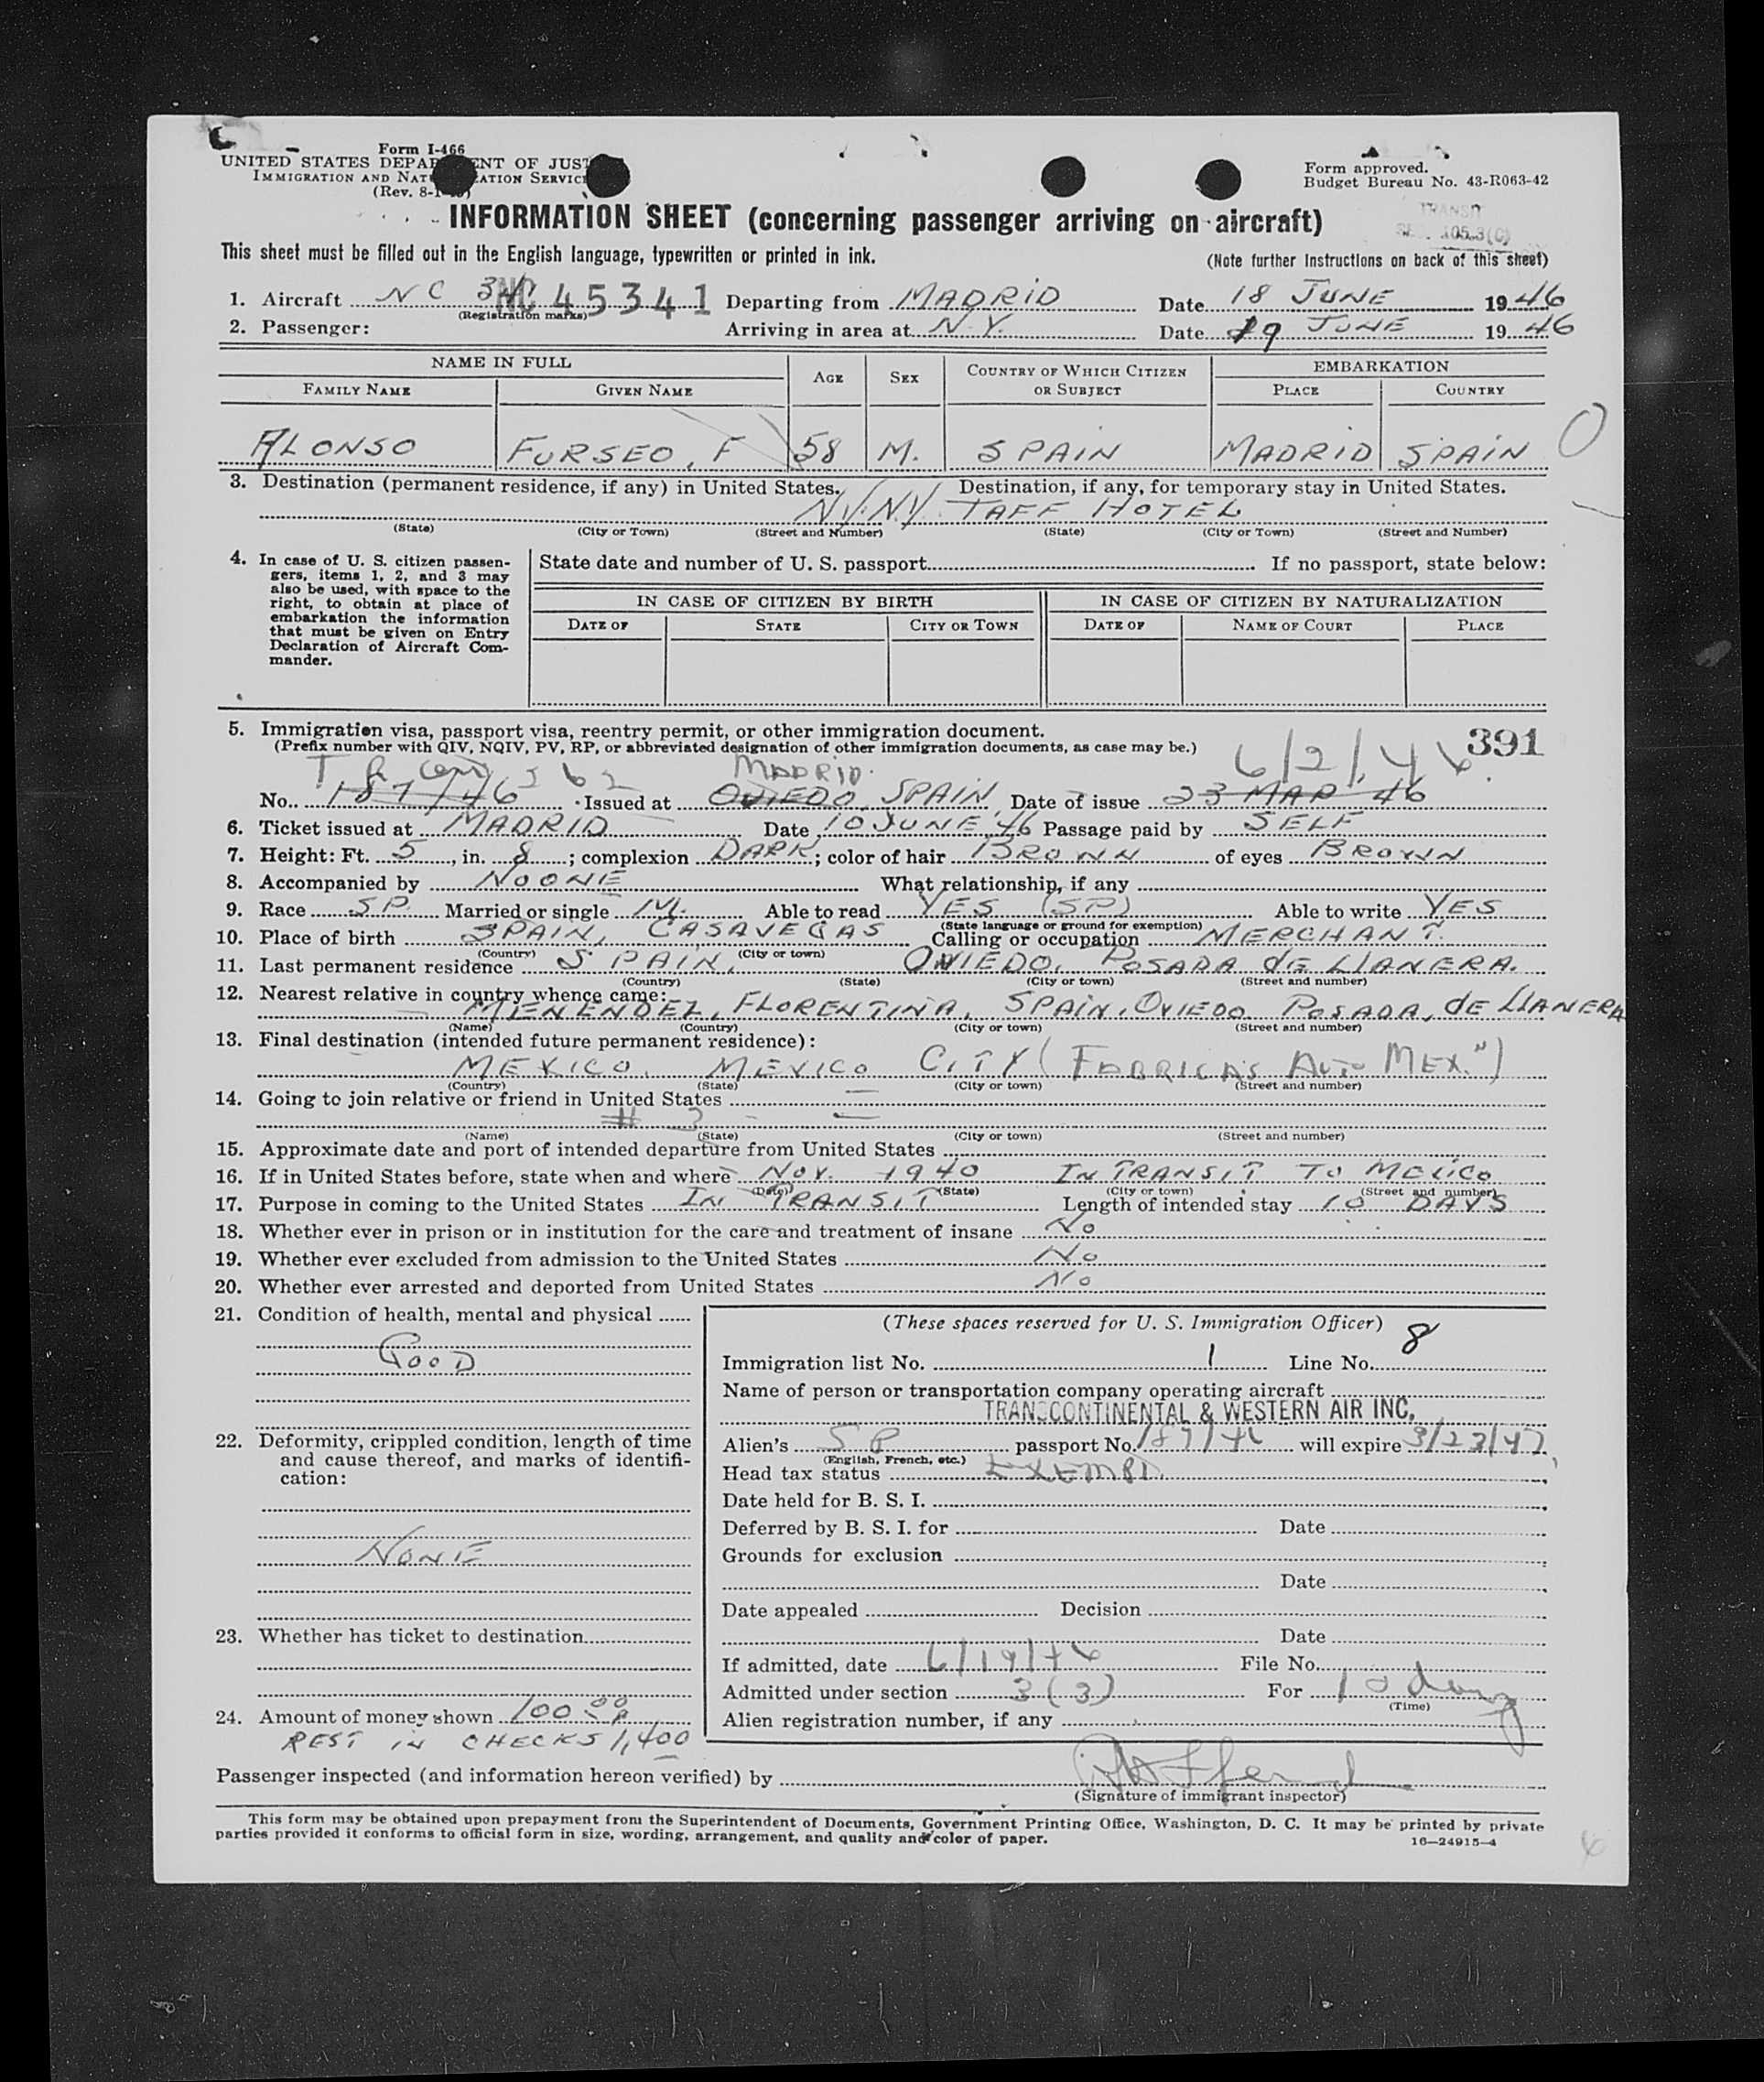 Form I-466
UNITED STATES DEPAR ENT OF JUST
IMMIGRATION AND NAT ATION SERVIC
(Rev. 8-1
Form approved.
Budget Bureau No. 43-R063-42
INFORMATION SHEET (concerning passenger arriving on aircraft)
TRANSIT
105.3(C)
This sheet must be filled out in the English language, typewritten or printed in ink.
(Note further Instructions on back of this sheet)
1. Aircraft NC 34 NC 45341 Departing from MADRID Date 18 JUNE 1946
(Registration marks)
2. Passenger: Arriving in area at N.Y. Date 19 JUNE 1946
NAME IN FULL AGE SEX COUNTRY OF WHICH CITIZEN OR SUBJECT EMBARKATION
FAMILY NAME GIVEN NAME PLACE COUNTRY
ALONSO FURSEO, F 58 M. SPAIN MADRID SPAIN O
3. Destination (permanent residence, if any) in United States. Destination, if any, for temporary stay in United States.
N.Y. N.Y. TAFF HOTEL
(State) (City or Town) (Street and Number) (State) (City or Town) (Street and Number)
4. In case of U. S. citizen passen-
gers, items 1, 2, and 3 may
also be used, with space to the
right, to obtain at place of
embarkation the information
that must be given on Entry
Declaration of Aircraft Com-
mander.
State date and number of U. S. passport If no passport, state below:
IN CASE OF CITIZEN BY BIRTH IN CASE OF CITIZEN BY NATURALIZATION
DATE OF STATE CITY OR TOWN DATE OF NAME OF COURT PLACE
5. Immigration visa, passport visa, reentry permit, or other immigration document.
(Prefix number with QIV, NQIV, PV, RP, or abbreviated designation of other immigration documents, as case may be.)
391
562 MADRID. 6/2/46.
No. 187/46 Issued at OVIEDO, SPAIN Date of issue 23 MAR 46
6. Ticket issued at MADRID Date 10 JUNE, 46 Passage paid by SELF
7. Height: Ft. 5, in. 8; complexion DARK; color of hair BROWN of eyes BROWN
8. Accompanied by NOONE What relationship, if any
9. Race SP. Married or single M. Able to read YES (SP) Able to write YES
(State language or ground for exemption)
10. Place of birth SPAIN, CASAVEGAS Calling or occupation MERCHANT.
(Country) (City or town)
11. Last permanent residence SPAIN, OVIEDO, POSADA de LLANERA.
(Country) (State) (City or town) (Street and number)
12. Nearest relative in country whence came:
MENENDEZ, FLORENTINA, SPAIN, OVIEDO. POSADA, de LLANERA
(Name) (Country) (City or town) (Street and number)
13. Final destination (intended future permanent residence):
MEXICO. MEXICO CITY ( FABRICAS AUTO MEX.")
(Country) (State) (City or town) (Street and number)
14. Going to join relative or friend in United States
# 3 -
(Name) (State) (City or town) (Street and number)
15. Approximate date and port of intended departure from United States
16. If in United States before, state when and where NOV. 1940 IN TRANSIT TO MEXICO
(Date) (State) (City or town) (Street and number)
17. Purpose in coming to the United States IN TRANSIT Length of intended stay 10 DAYS
18. Whether ever in prison or in institution for the care and treatment of insane No
19. Whether ever excluded from admission to the United States No
20. Whether ever arrested and deported from United States No
21. Condition of health, mental and physical
GOOD
22. Deformity, crippled condition, length of time
and cause thereof, and marks of identifi-
cation:
NONE
23. Whether has ticket to destination
24. Amount of money shown 100 00
REST IN CHECKS 1,400
(These spaces reserved for U. S. Immigration Officer)
Immigration list No. 1 Line No. 8
Name of person or transportation company operating aircraft
TRANSCONTINENTAL & WESTERN AIR INC.
Alien's SP passport No. 187/46 will expire 3/23/47
(English, French, etc.)
Head tax status EXEMPT
Date held for B. S. I.
Deferred by B. S. I. for Date
Grounds for exclusion
Date
Date appealed Decision
Date
If admitted, date 6/19/46 File No.
Admitted under section 3(3) For 10 days
(Time)
Alien registration number, if any
Passenger inspected (and information hereon verified) by
(Signature of immigrant inspector)
This form may be obtained upon prepayment from the Superintendent of Documents, Government Printing Office, Washington, D. C. It may be printed by private
parties provided it conforms to official form in size, wording, arrangement, and quality and color of paper.
16—24915-4